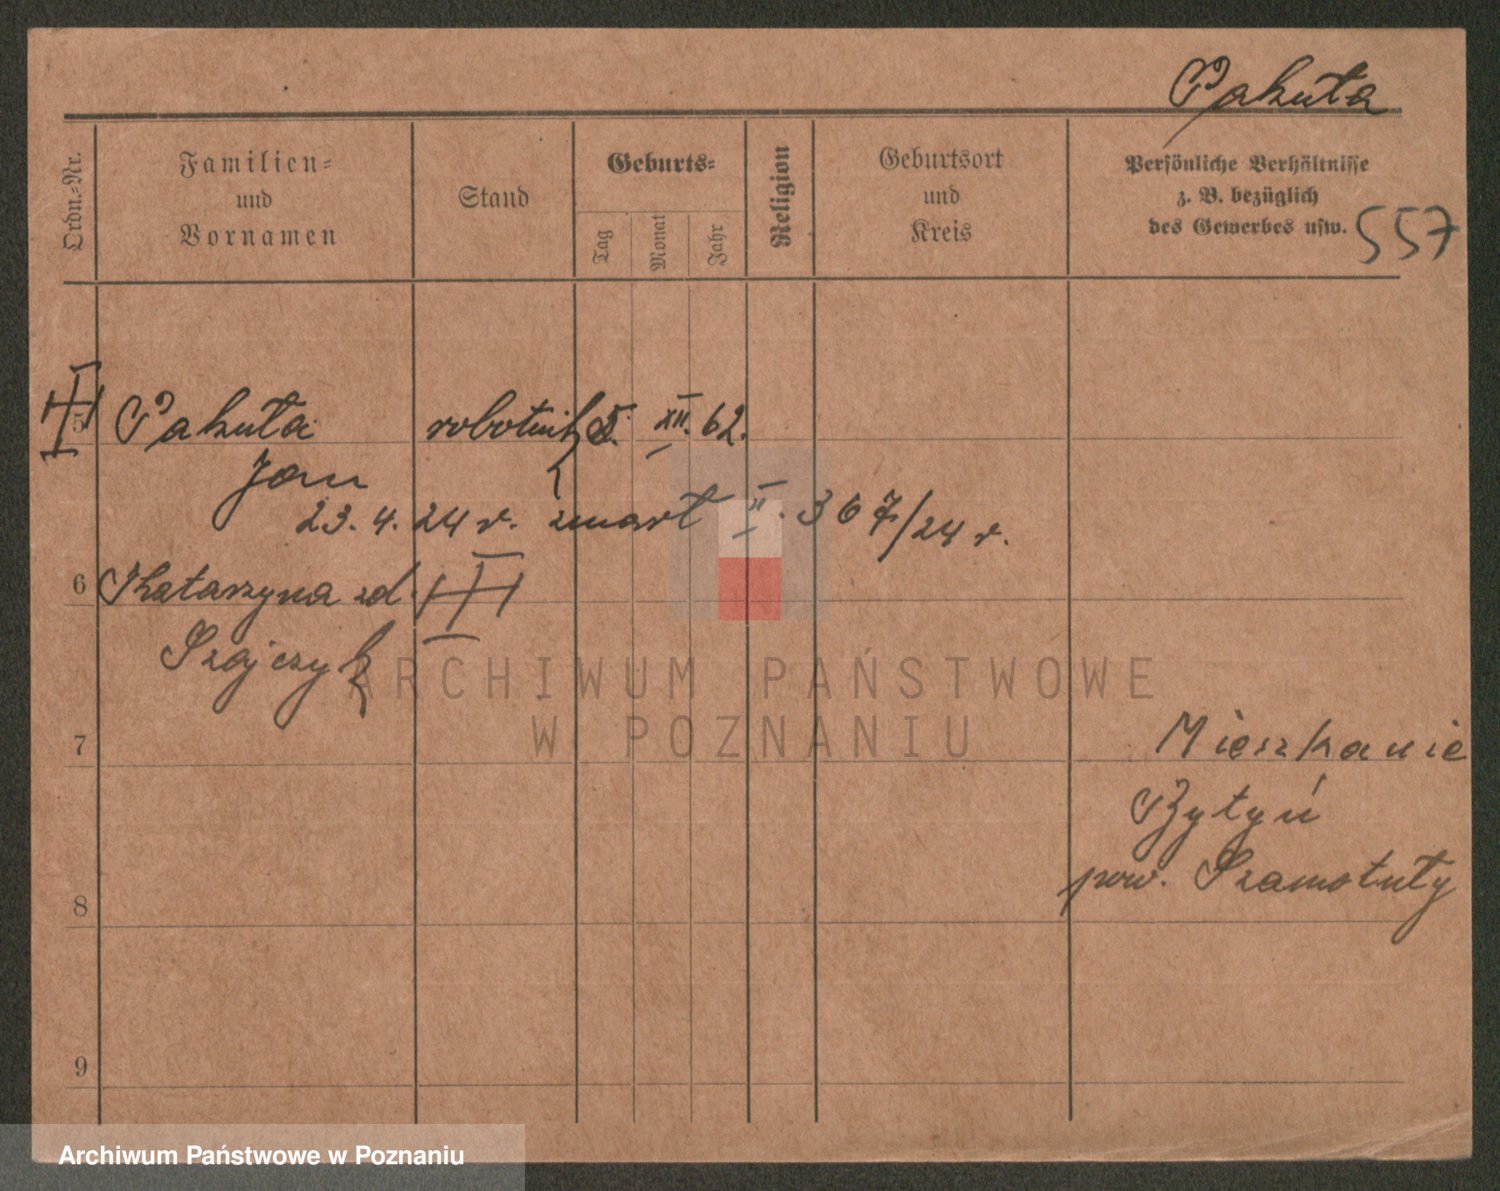 Pakuta
Ordn.-Nr.
Familien-
und
Vornamen
Stand
Geburts-
Tag
Monat
Jahr
Religion
Geburtsort
und
Kreis
Persönliche Verhältnisse
z. B. bezüglich
des Gewerbes usw.
557
5 Pakuta robotnik 5. XII. 62.
Jan
23. 4. 24 r. zmarł II. 367/24 r.
6 Katarzyna zd.
Szajczyk
ARCHIWUM PAŃSTWOWE
W POZNANIU
7 Mieszkanie
Bytyń
pow. Szamotuły
8
9
Archiwum Państwowe w Poznaniu